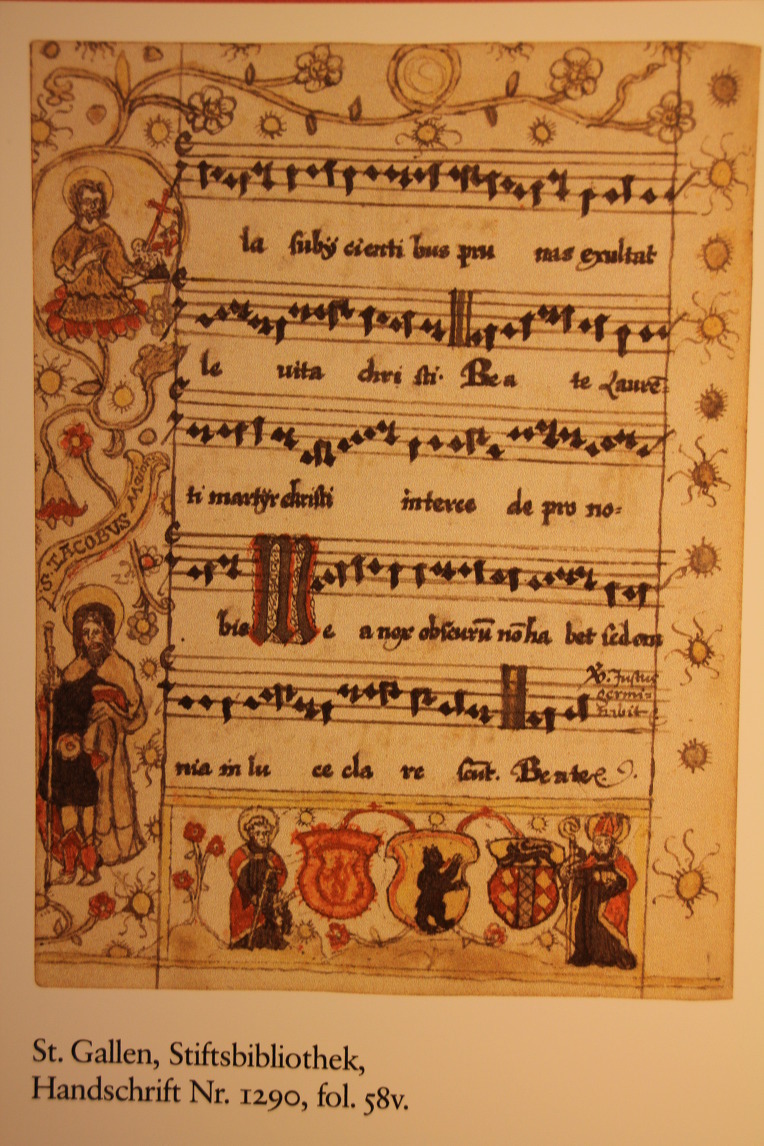 la subÿ cienti bus pru nas exultat
le uita chri sti. Bea te Laurē=
ti martÿr christi interce de pro no=
bis M e a nox obscurū nō ha bet sed om
℣. Justus
germi=
nabit
nia in lu ce cla re scūt. Beate
S. IACOBVS MAIOR
St. Gallen, Stiftsbibliothek,
Handschrift Nr. 1290, fol. 58v.